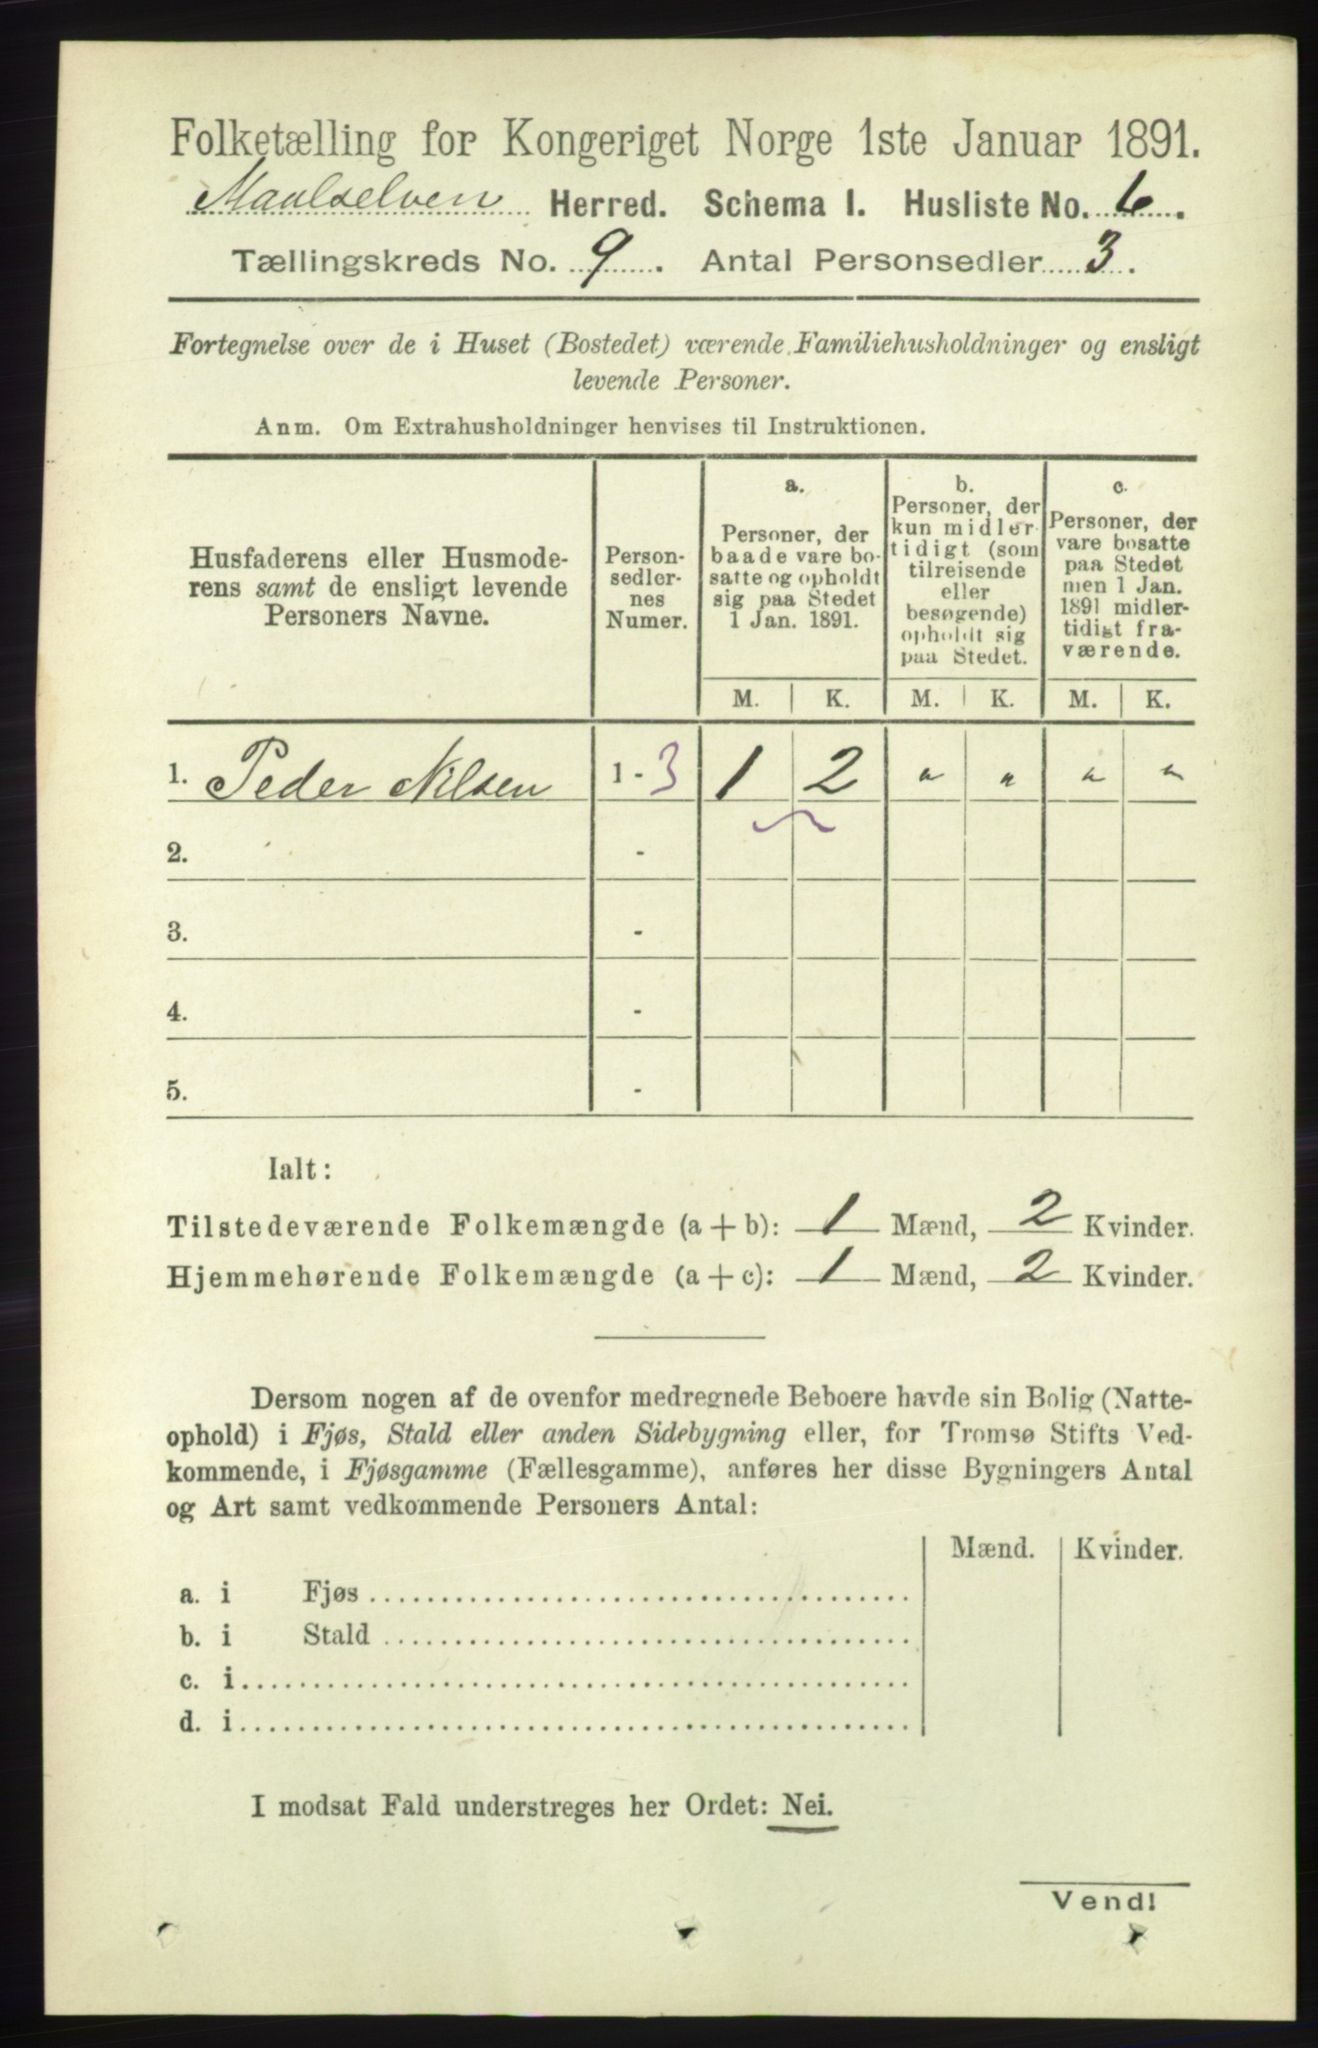 Folketælling for Kongeriget Norge 1ste Januar 1891.
Maalselven Herred. Schema I. Husliste No. 6.
Tællingskreds No. 9. Antal Personsedler 3.
Fortegnelse over de i Huset (Bostedet) værende Familiehusholdninger og ensligt
levende Personer.
Anm. Om Extrahusholdninger henvises til Instruktionen.
Husfaderens eller Husmode-
rens samt de ensligt levende
Personers Navne.
Person-
sedler-
nes
Numer.
a.
Personer, der
baade vare bo-
satte og opholdt
sig paa Stedet
1 Jan. 1891.
b.
Personer, der
kun midler-
tidigt (som
tilreisende
eller
besøgende)
opholdt sig
paa Stedet.
c.
Personer, der
vare bosatte
paa Stedet
men 1 Jan.
1891 midler-
tidigt fra-
værende.
M. K. M. K. M. K.
1. Peder Nilsen 1 - 3 1 2 " " " "
2. -
3. -
4. -
5. -
Ialt:
Tilstedeværende Folkemængde (a + b): 1 Mænd, 2 Kvinder.
Hjemmehørende Folkemængde (a + c): 1 Mænd, 2 Kvinder.
Dersom nogen af de ovenfor medregnede Beboere havde sin Bolig (Natte-
ophold) i Fjøs, Stald eller anden Sidebygning eller, for Tromsø Stifts Ved-
kommende, i Fjøsgamme (Fællesgamme), anføres her disse Bygningers Antal
og Art samt vedkommende Personers Antal:
Mænd. Kvinder.
a. i Fjøs
b. i Stald
c. i
d. i
I modsat Fald understreges her Ordet: Nei.
Vend!